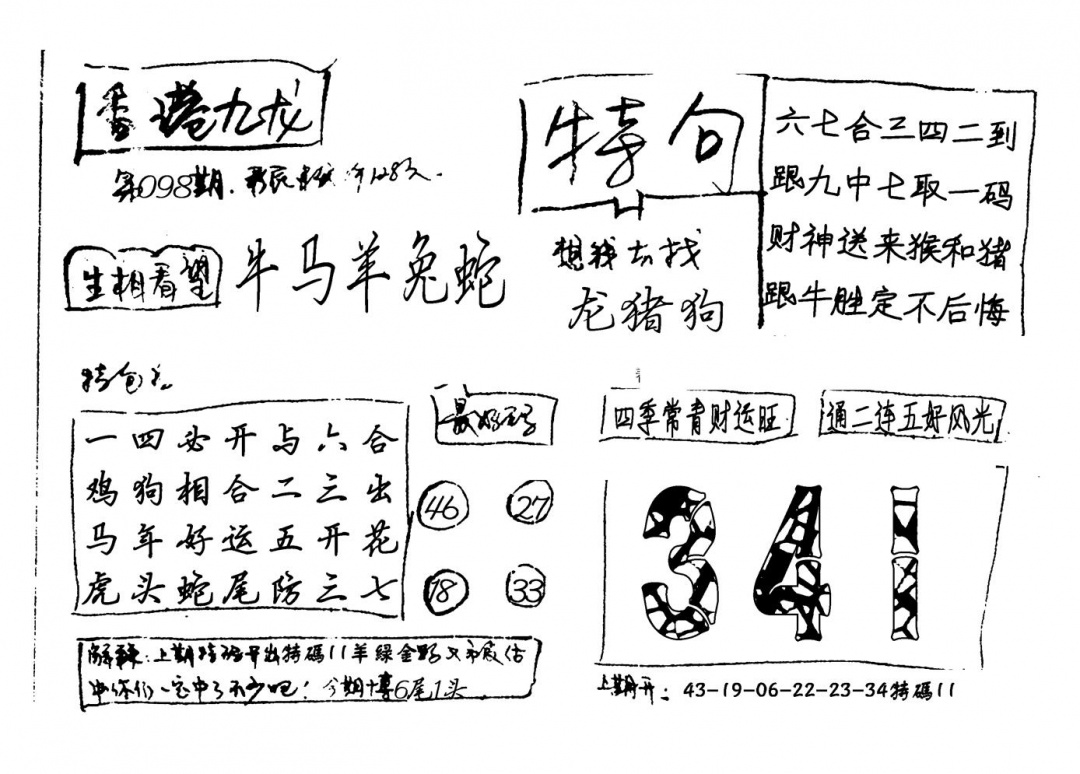 香港九龙
第098期.
特句
六七合三四二到
跟九中七取一码
财神送来猴和猪
跟牛胜定不后悔
生相看望
牛马羊兔蛇
想我去找
龙猪狗
特包
一四必开与六合
鸡狗相合二三出
马年好运五开花
虎头蛇尾防三七
最好码
46 27
18 33
四季常青财运旺
通二连五好风光
341
解释:上期特码开出特碼11羊绿金野又
中你们一定中了不少吧!今期博6尾1头
上期开: 43-19-06-22-23-34特碼11